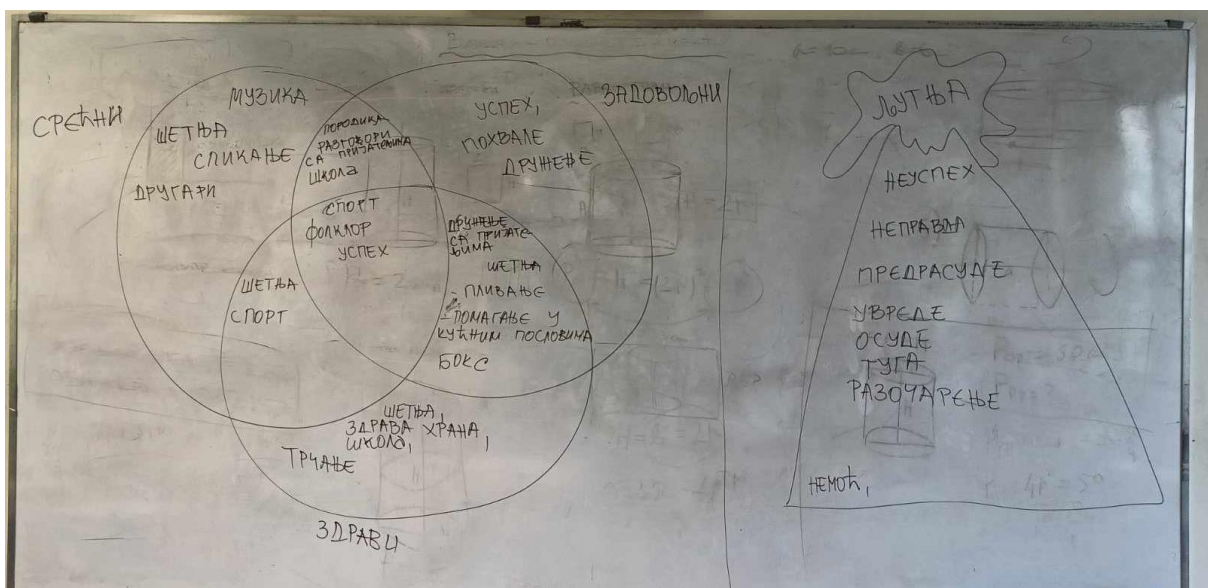 СРЕЋНИ
МУЗИКА
ШЕТЊА
СЛИКАЊЕ
ДРУГАРИ
ПОРОДИКА
РАЗГОВОРИ
СА ПРИЈАТЕЉИМА
ШКОЛА
УСПЕХ,
ПОХВАЛЕ
ДРУЖЕЊЕ
ЗАДОВОЉНИ
СПОРТ
ФОЛКЛОР
УСПЕХ
ШЕТЊА
СПОРТ
ДРУЖЕЊЕ
СА ПРИЈАТЕ
ЉИМА
ШЕТЊА
- ПЛИВАЊЕ
- ПОМАГАЊЕ У
КУЋНИМ ПОСЛОВИМА
БОКС
ШЕТЊА,
ЗДРАВА ХРАНА,
ШКОЛА,
ТРЧАЊЕ
ЗДРАВИ
ЉУТЊА
НЕУСПЕХ
НЕПРАВДА
ПРЕДРАСУДЕ
УВРЕДЕ
ОСУДЕ
ТУГА
РАЗОЧАРЕЊЕ
НЕМОЋ,